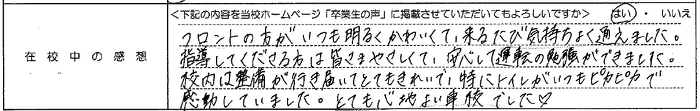 ＜下記の内容を当校ホームページ「卒業生の声」に掲載させていただいてもよろしいですか＞ はい ・ いいえ
在校中の感想
フロントの方がいつも明るくかわいくて、来るたび気持ちよく通えました。
指導してくださる方は皆さまやさしくて、安心して運転の勉強ができました。
校内は整備が行き届いてとてもきれいで、特にトイレがいつもピカピカで
感動していました。とても心地よい車校でした♡